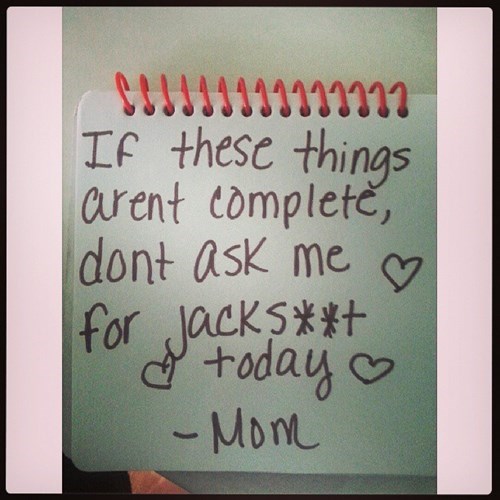 If these things
arent complete,
dont ask me ♡
for jacks**t
♡ today ♡
- Mom